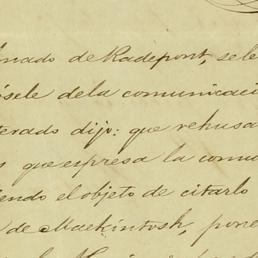 nado de Radepont, sele
sele dela comunicaci
terado dijo: que rehusa
que espresa la comu
endo el objeto de citarlo
de Mackintosh, pone